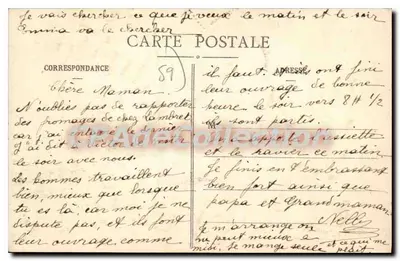 Je vais chercher ce que je veux le matin et le soir
Emma va le chercher
CARTE POSTALE
CORRESPONDANCE
ADRESSE
59
Chère Maman.
N'oubliés pas de rapporter
des fromages de chez Lambret
car j'ai le dernier
j'ai dit
le soir avec nous.
Les hommes travaillent
bien, mieux que lorsque
tu es là, car moi je ne
dispute pas, et ils font
leur ouvrage comme
il faut. ils ont fini
leur ouvrage de bonne
heure le soir vers 8H 1/2
ils sont partis.
assiette
et le ravier ce matin
Je finis en t'embrassant
bien fort ainsi que
papa et Grandmaman
Nelly
Je m'arrange on
ne peut mieux à
midi, je mange seule et ce qui me
plaît